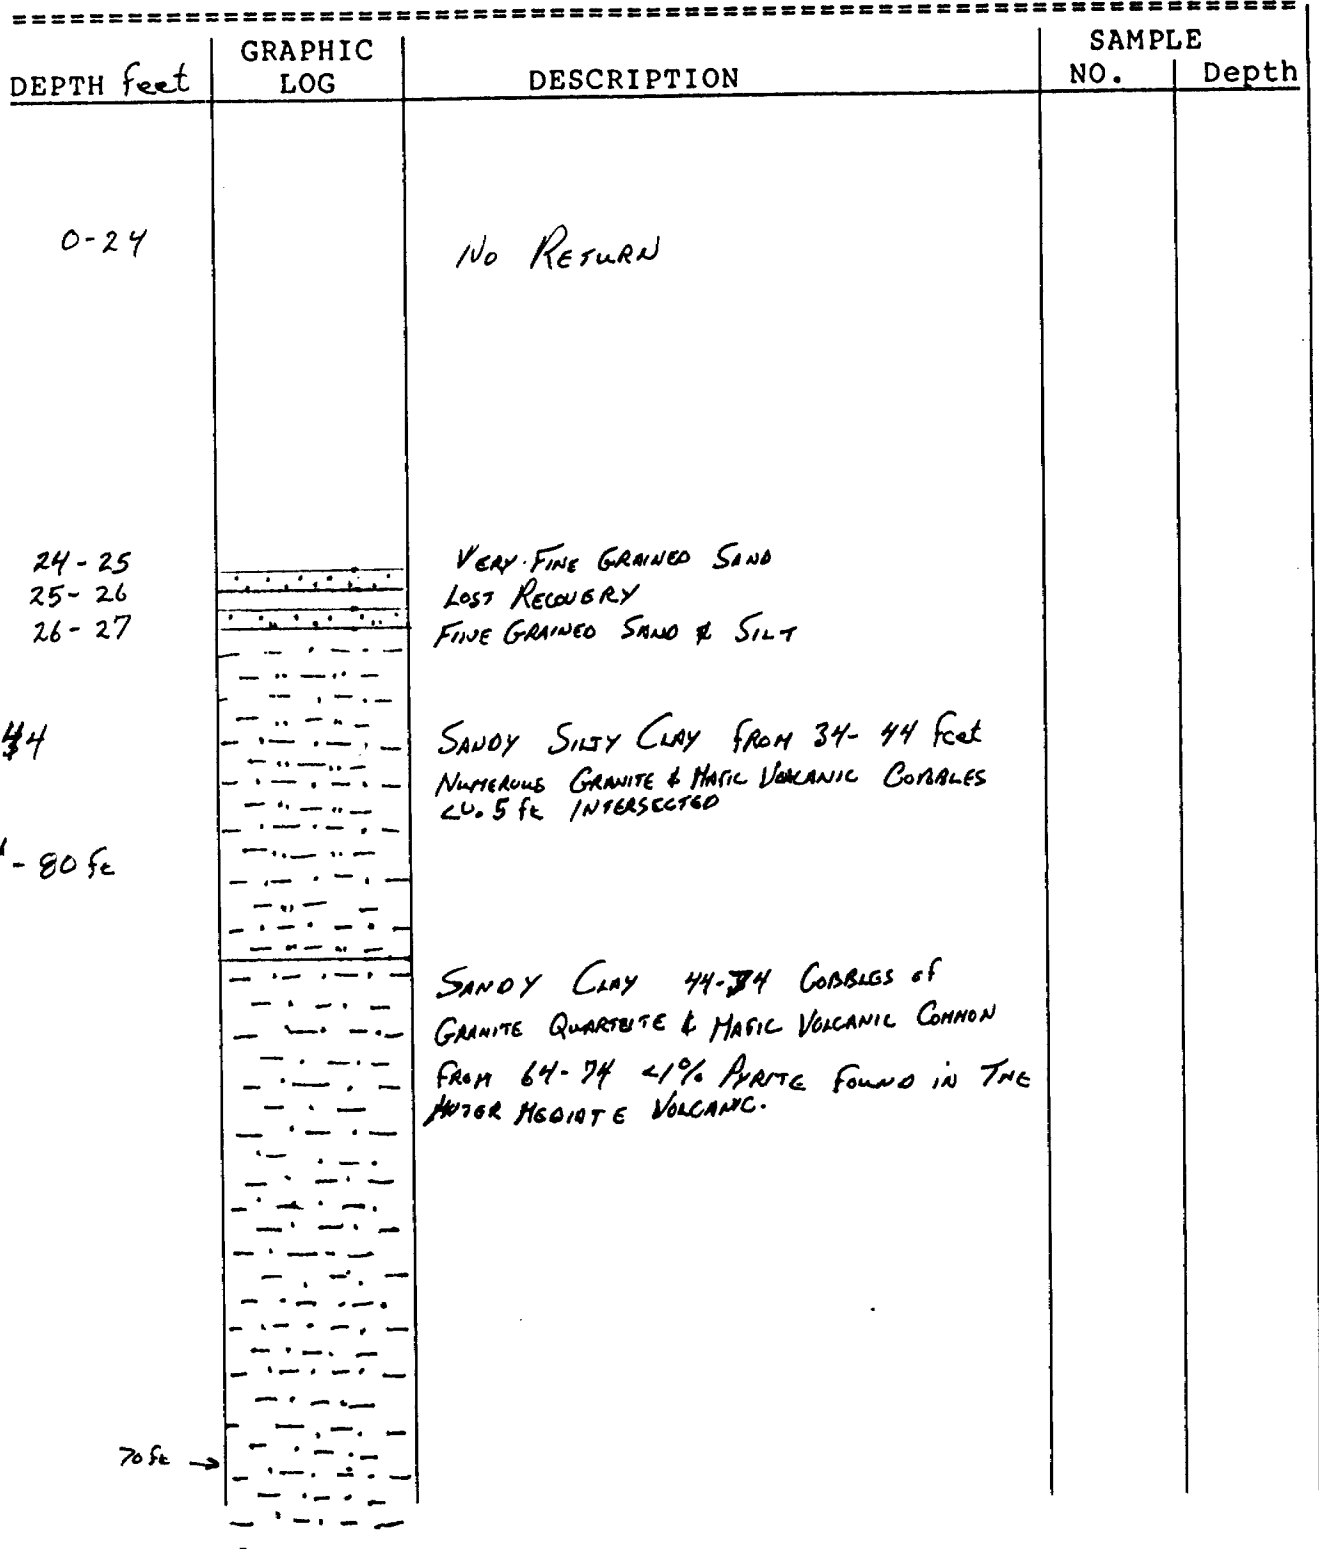 GRAPHIC SAMPLE
DEPTH feet LOG DESCRIPTION NO. Depth
0-24 No RETURN
24-25 VERY FINE GRAINED SAND
25-26 LOST RECOVERY
26-27 FINE GRAINED SAND & SILT
SANDY SILTY CLAY FROM 34-44 feet
NUMEROUS GRANITE & MAFIC VOLCANIC COBBLES
<0.5 ft INTERSECTED
- 80 ft
SANDY CLAY 44-74 COBBLES of
GRANITE QUARTZITE & MAFIC VOLCANIC COMMON
FROM 64-74 <1% PYRITE FOUND IN THE
INTERMEDIATE VOLCANIC.
70 ft →